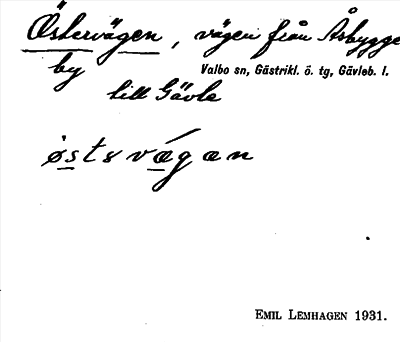 Östervägen, vägen från Åsbygge
by
Valbo sn, Gästrikl. ö. tg, Gävleb. l.
till Gävle
østsvǽgæn
EMIL LEMHAGEN 1931.